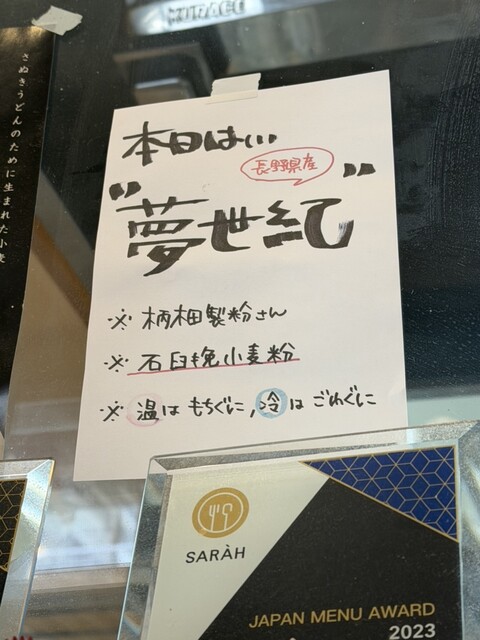 KURAGE
さぬきうどんのために生まれた小麦
本日は、、、
長野県産
"夢世紀"
※ 柄木田製粉さん
※ 石臼挽小麦粉
※ 温はもちぐに,冷はごわぐに
SARÀH
JAPAN MENU AWARD
2023